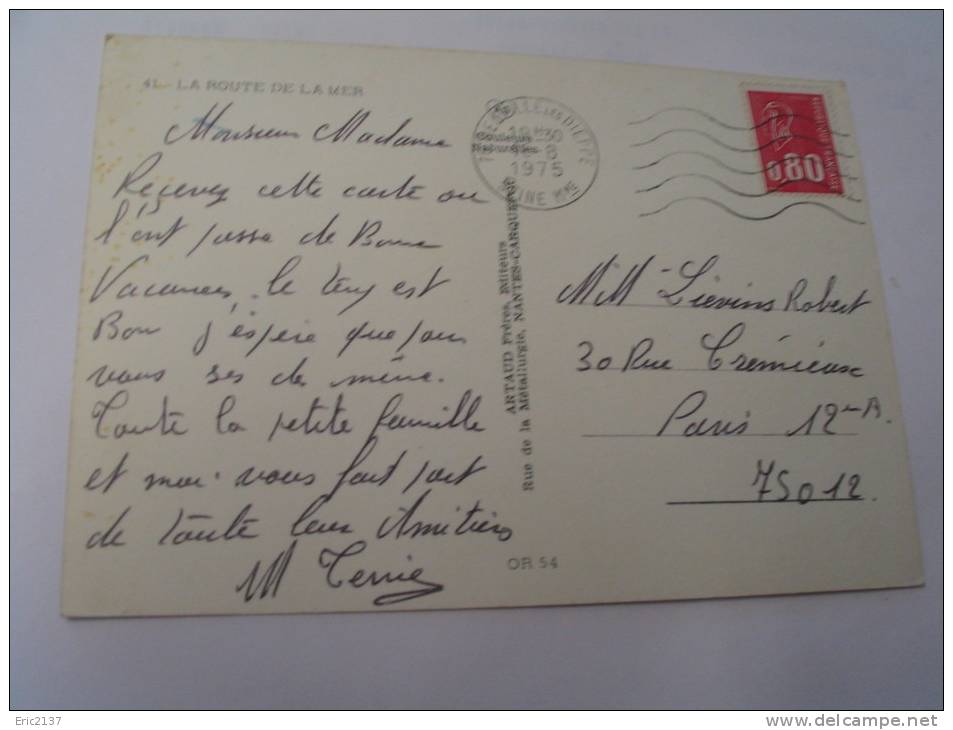 41. LA ROUTE DE LA MER
Monsieur Madame
Recevez cette carte ou
l'ont passe de Bonne
Vacances. le temp est
Bon j'espère que pour
vous ses de même.
Toute la petite famille
et moi vous font part
de toute leur Amitiers
M
LES DIEPPE
18H30
Couleurs
Naturelles
1975
SEINE Mme
ARTAUD Frères, Editeurs
Rue de la Métallurgie, NANTES-CARQUEFOU
OR 54
0,80
MM Liévins Robert
30 Rue Crémieux
Paris 12
75012.
Eric2137
www.delcampe.net